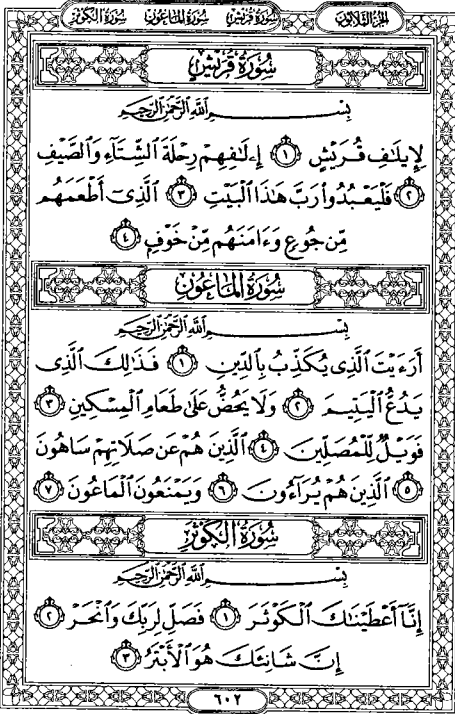 سُورَةُ قُرَيْشٍ سُورَةُ المَاعُونِ سُورَةُ الكَوْثَرِ
الجُزْءُ الثَّلَاثُونَ
سُورَةُ قُرَيْشٍ
بِسْمِ ٱللَّهِ ٱلرَّحْمَٰنِ ٱلرَّحِيمِ
لِإِيلَٰفِ قُرَيْشٍ ١ إِۦلَٰفِهِمْ رِحْلَةَ ٱلشِّتَآءِ وَٱلصَّيْفِ
٢ فَلْيَعْبُدُوا۟ رَبَّ هَٰذَا ٱلْبَيْتِ ٣ ٱلَّذِىٓ أَطْعَمَهُم
مِّن جُوعٍ وَءَامَنَهُم مِّنْ خَوْفٍۭ ٤
سُورَةُ المَاعُونِ
بِسْمِ ٱللَّهِ ٱلرَّحْمَٰنِ ٱلرَّحِيمِ
أَرَءَيْتَ ٱلَّذِى يُكَذِّبُ بِٱلدِّينِ ١ فَذَٰلِكَ ٱلَّذِى
يَدُعُّ ٱلْيَتِيمَ ٢ وَلَا يَحُضُّ عَلَىٰ طَعَامِ ٱلْمِسْكِينِ ٣
فَوَيْلٌ لِّلْمُصَلِّينَ ٤ ٱلَّذِينَ هُمْ عَن صَلَاتِهِمْ سَاهُونَ
٥ ٱلَّذِينَ هُمْ يُرَآءُونَ ٦ وَيَمْنَعُونَ ٱلْمَاعُونَ ٧
سُورَةُ الكَوْثَرِ
بِسْمِ ٱللَّهِ ٱلرَّحْمَٰنِ ٱلرَّحِيمِ
إِنَّآ أَعْطَيْنَٰكَ ٱلْكَوْثَرَ ١ فَصَلِّ لِرَبِّكَ وَٱنْحَرْ ٢
إِنَّ شَانِئَكَ هُوَ ٱلْأَبْتَرُ ٣
٦٠٢